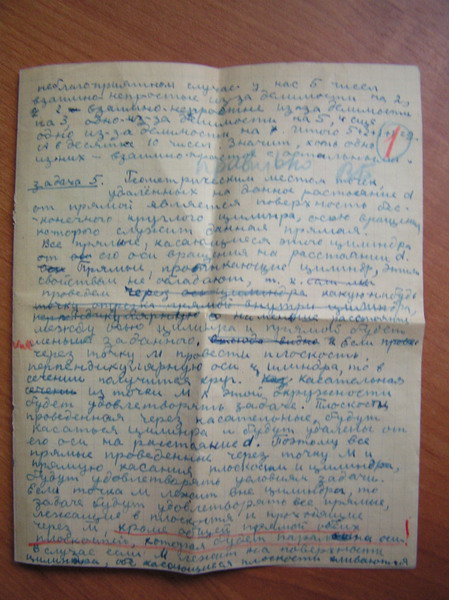 неблагоприятном случае у нас 5 чисел
взаимно непростые из-за делимости на 2,
и 2 - взаимно непростые из-за делимости
на 3, одно из-за делимости на 5, и еще
одно из-за делимости на 7. Итого
А в десятке 10 чисел. Значит, хоть одно
взаимно
правильно
1
Задача 5. Геометрическим местом точек,
удалённых на данное расстояние d
от прямой является поверхность бес-
конечного круглого цилиндра, осью вращения
которого служит данная прямая.
Все прямые, касающиеся этого цилиндра
от его оси вращения на расстоянии d.
Прямые, протыкающие цилиндр, этим
свойством не обладают, т. к.
проведем через какую-нибудь
точку прямой внутри цилиндра,
перпендикулярную наименьшее расстояние
между осью цилиндра и прямой будет
меньше заданного. и если
через точку М провести плоскость
перпендикулярную оси цилиндра, то в
сечении получится круг. касательная
из точки М к этой окружности
будет удовлетворять задаче. Плоскость
проведенная через касательные, будут
касаться цилиндра и будут удалены от
его оси на расстояние d. Поэтому все
прямые проведенные через точку М и
прямую касания плоскости и цилиндра,
будут удовлетворять условиям задачи.
Если точка М лежит вне цилиндра, то
задаче будут удовлетворять все прямые,
лежащие в плоскостях и проходящие
через М, кроме общей прямой обеих
плоскостей, которая будет оси.
В случае если М лежит на поверхности
цилиндра, обе касающиеся плоскости сливаются